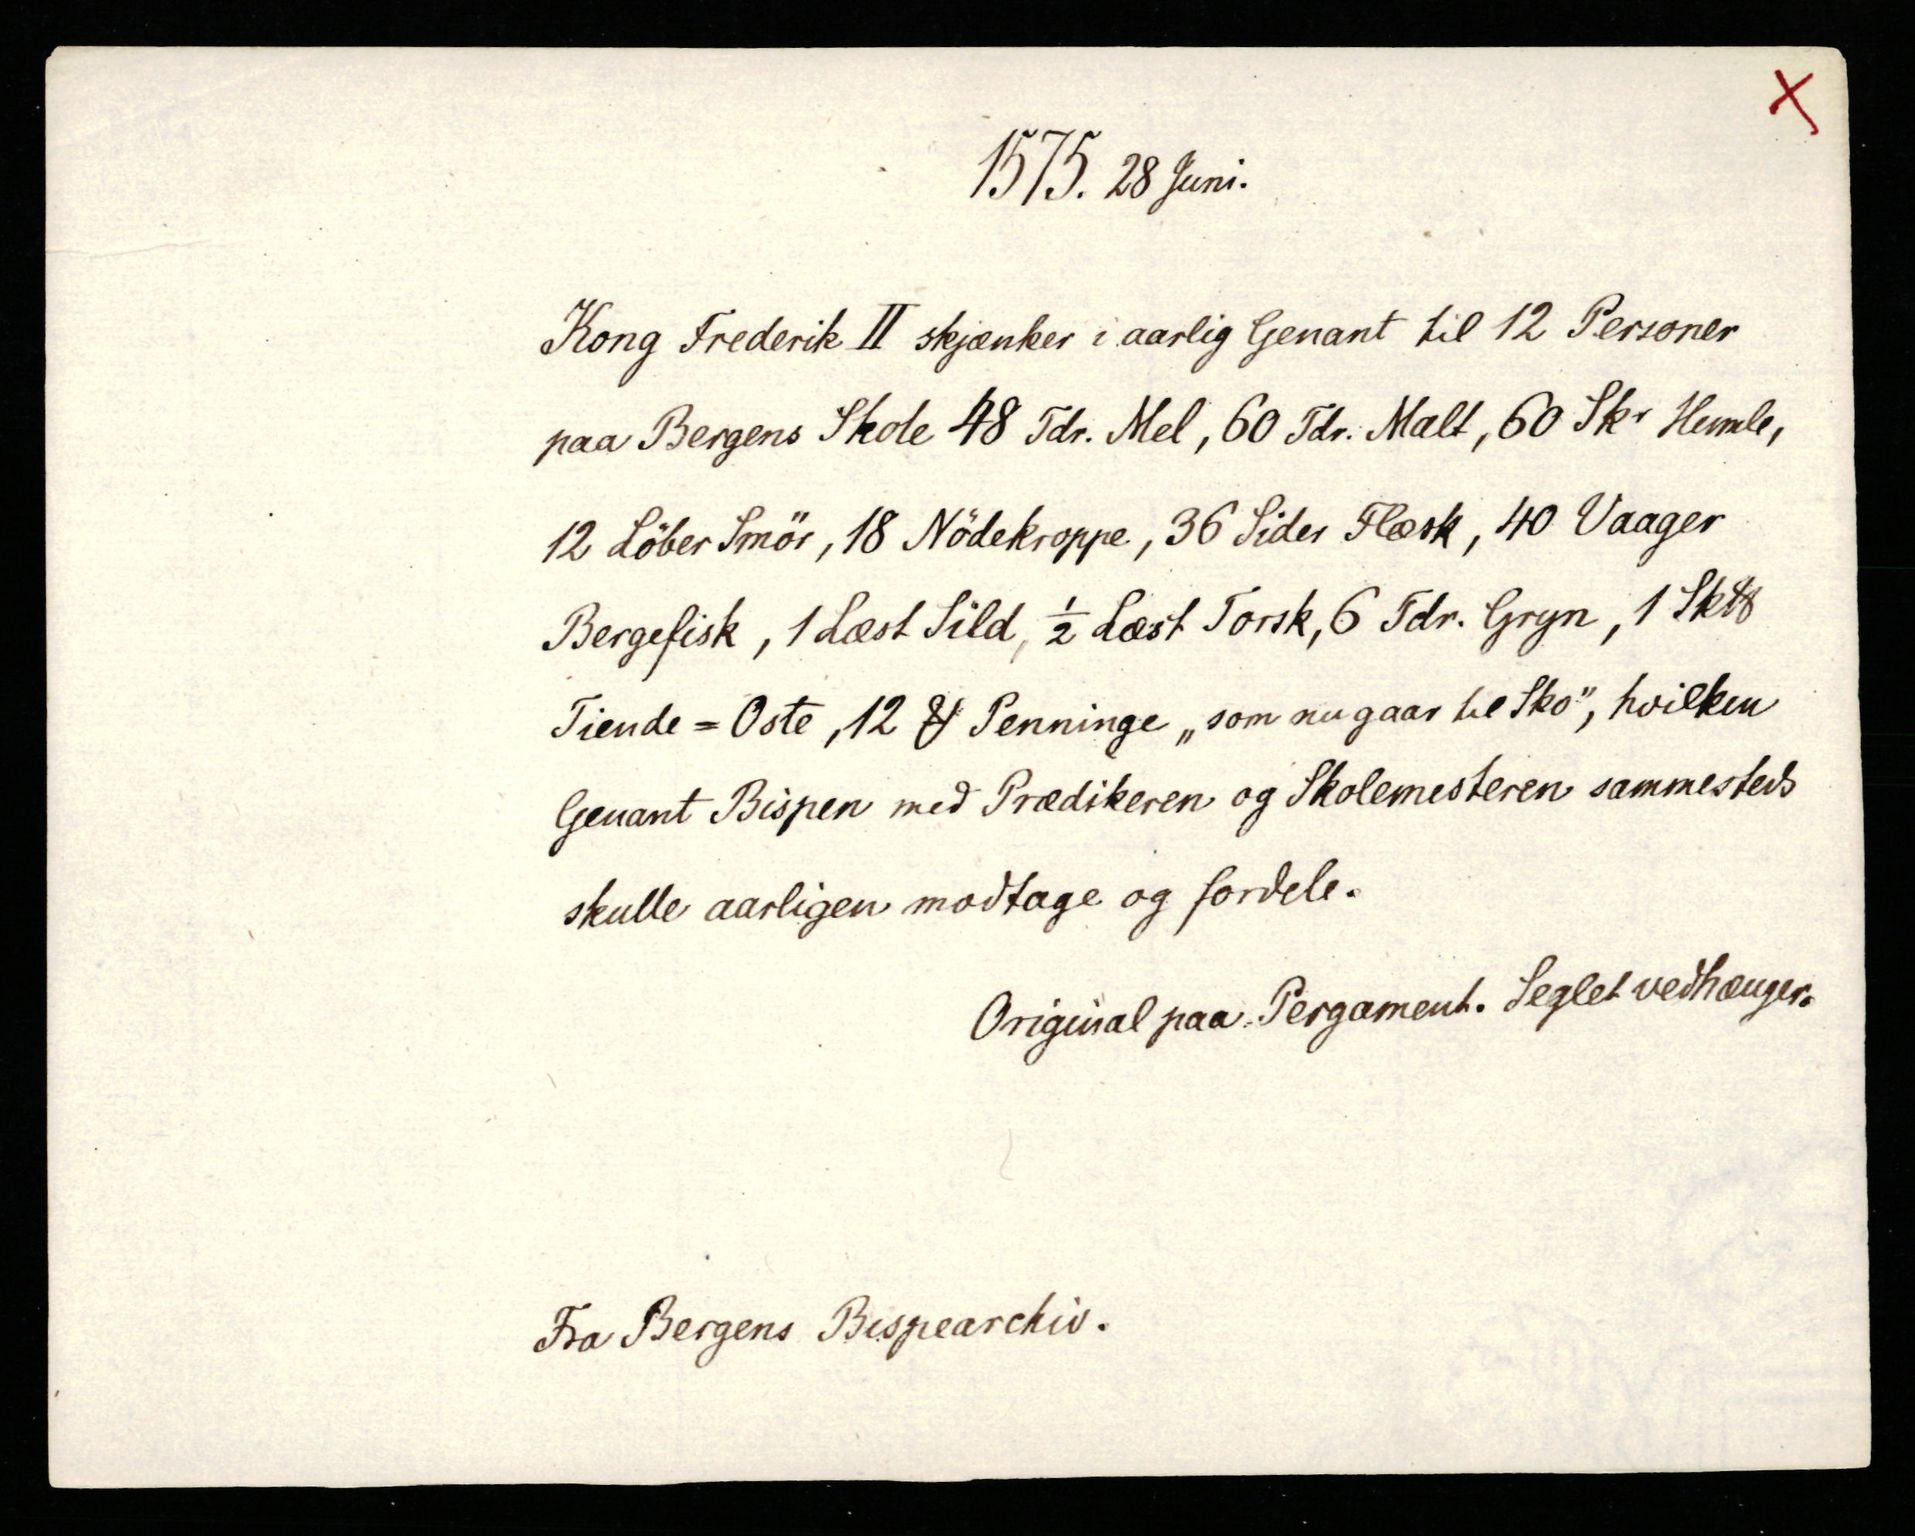 X
1575. 28 Juni.
Kong Frederik II skjænker i aarlig Genant til 12 Personer
paa Bergens Skole 48 Tdr. Mel, 60 Tdr. Malt, 60 Skr Humle,
12 Löber Smör, 18 Nödekroppe, 36 Sider Flæsk, 40 Vaager
Bergefisk, 1 Læst Sild, ½ Læst Torsk, 6 Tdr. Gryn, 1 Sk℔
Tiende=Oste, 12 Penninge „som nu gaar til Sko", hvilken
Genant Bispen med Prædikeren og Skolemesteren sammesteds
skulle aarligen modtage og fordele.
Original paa Pergament. Seglet vedhænger.
Fra Bergens Bispearchiv.